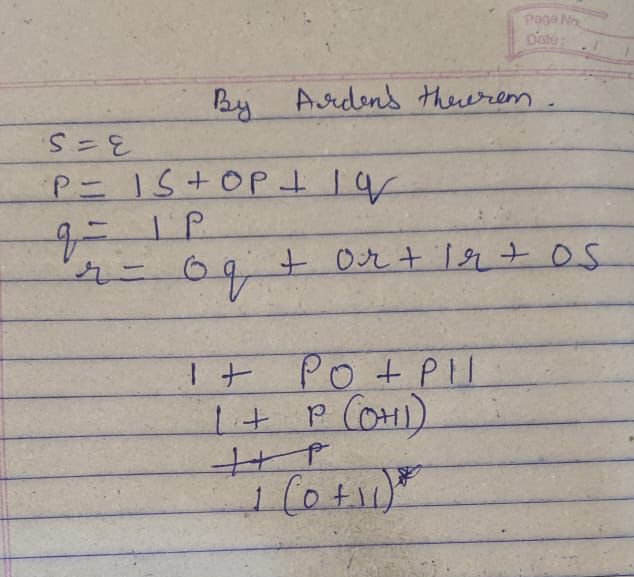 Page No.
Date:
By Arden's theurem.
S = ε
P = 1S + 0P + 1q
q = 1P
r = 0q + 0r + 1r + 0S
1 + P0 + P11
1 + P(0+11)
1 + P
1(0+11)*